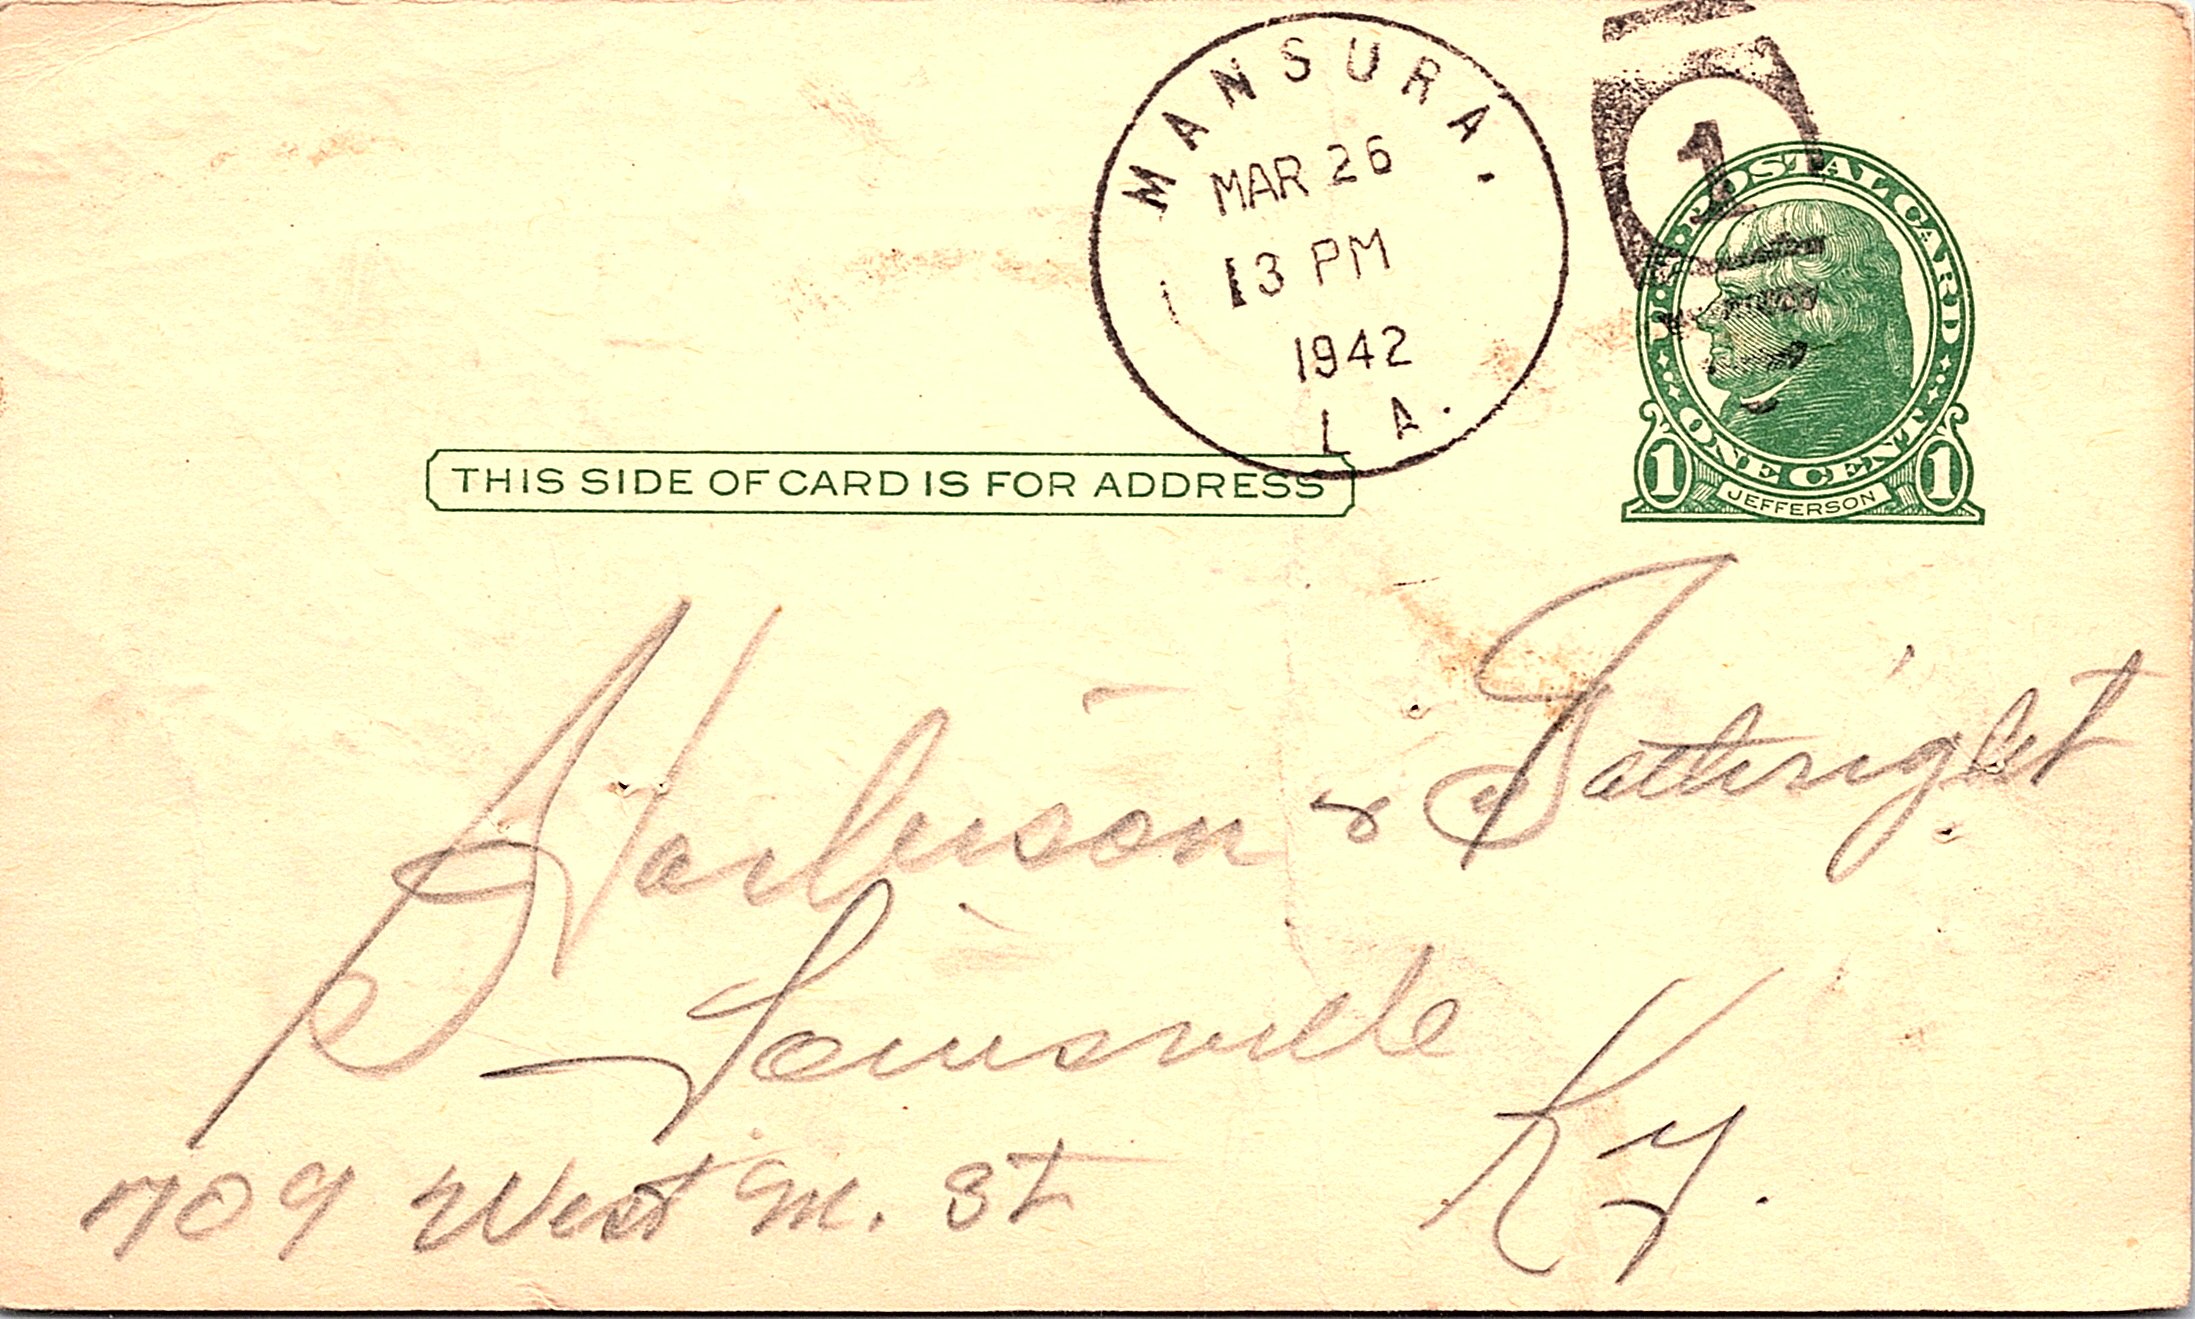 MANSURA.
MAR 26
13 PM
1942
LA.
1
U·S·POSTAL CARD
ONE CENT
1 JEFFERSON 1
THIS SIDE OF CARD IS FOR ADDRESS
Harbison & Gathright
Louisville
Ky.
709 West M. St